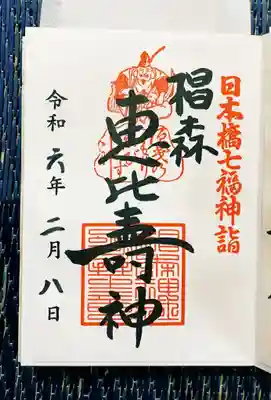 日本橋七福神詣
椙森
恵比壽神
令和六年二月八日